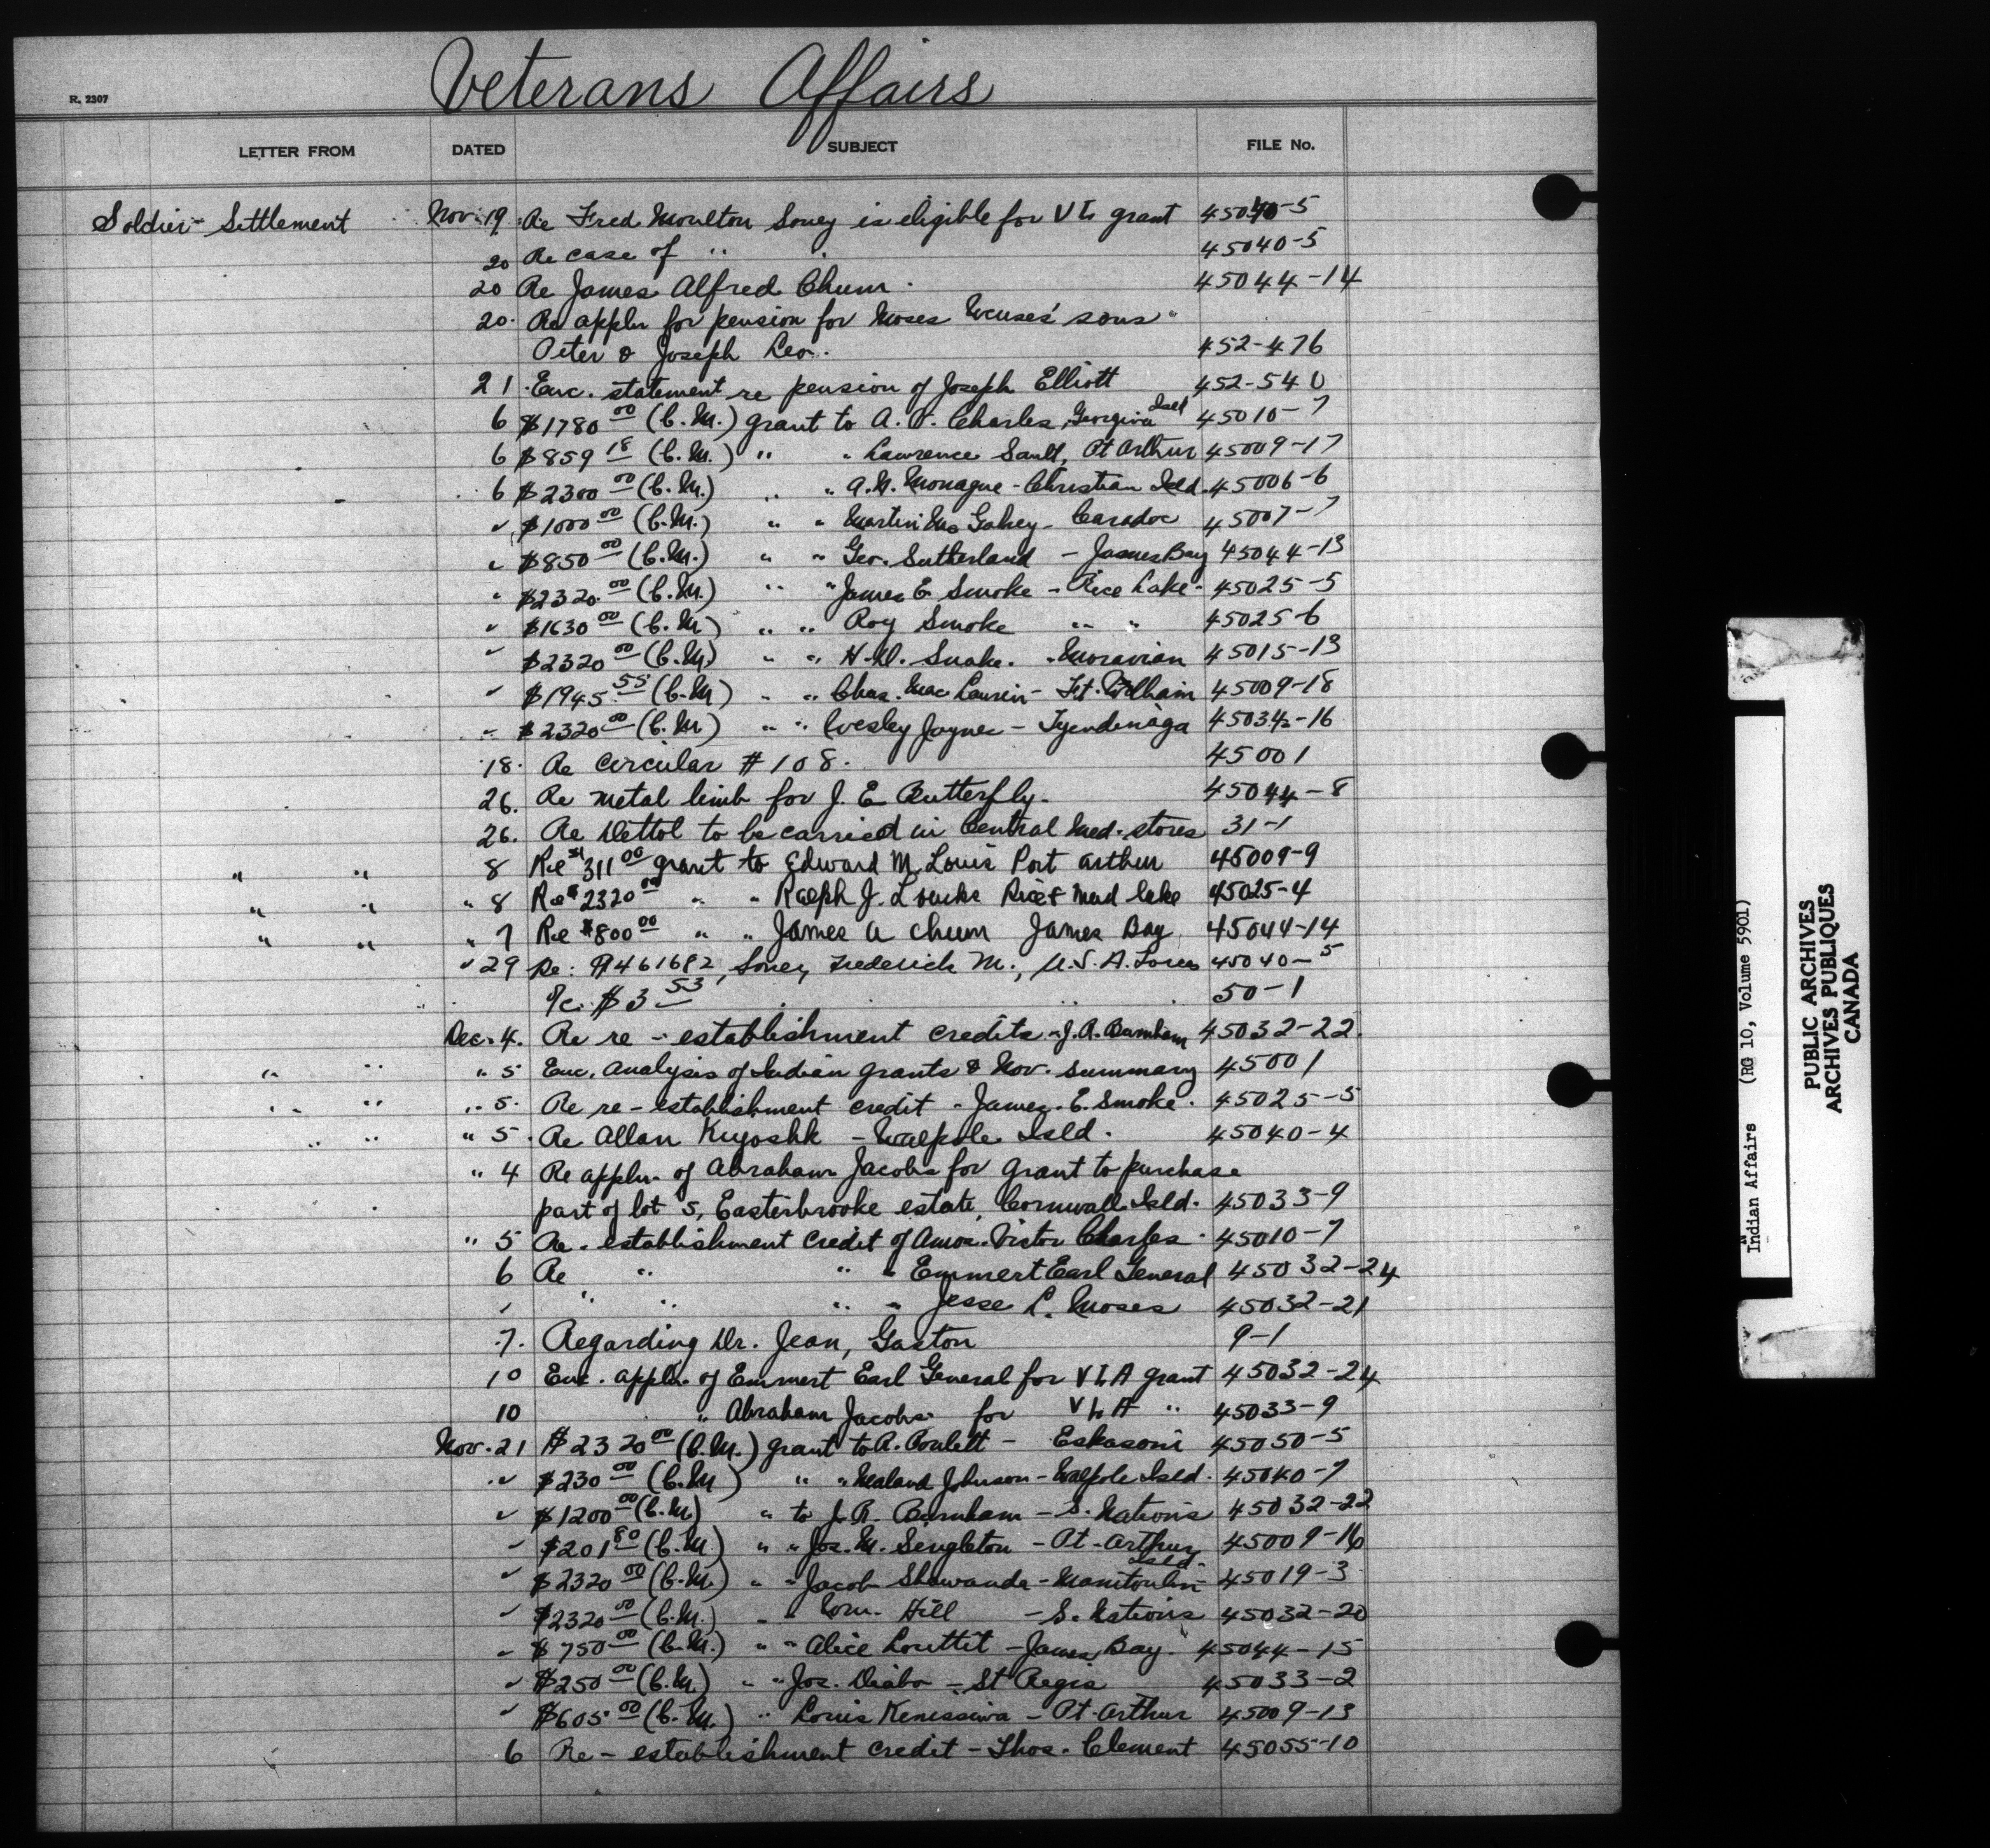 R. 2307
Veterans Affairs
LETTER FROM DATED SUBJECT FILE No.
Soldier Settlement Nov. 19. Re Fred Moulton Soney is eligible for V L grant 45040-5
20 Re case of " . 45040-5
20 Re James Alfred Chum. 45044-14
20. Re appln for pension for Moses sons
Peter & Joseph Leo. 452-476
21 Enc. statement re pension of Joseph Elliott 452-540
6 $1780 00 (C.M.) grant to A. V. Charles, Georgina Isld 45010-7
6 $859 18 (C.M.) " " Lawrence Sault, Pt Arthur 45009-17
6 $2300 00 (C.M.) " " A.N. Monague - Christian Isld. 45006-6
" $1000 00 (C.M.) " " Martin Mc Gahey - Caradoc 45007-7
" $850 00 (C.M.) " " Geo. Sutherland - James Bay 45044-13
" $2320 00 (C.M.) " " James E Smoke - Rice Lake - 45025-5
" $1630 00 (C.M) " " Roy Smoke " " 45025-6
" $2320 00 (C.M) " " Snake. - Moravian 45015-13
" $1945 55 (C.M) " " Chas. Mac Laurin - Ft. William 45009-18
" $2320 00 (C.M) " " Wesley Jaynes - Tyendinaga 45034-16
18. Re circular # 108. 45001
26. Re metal limb for J. E Butterfly. 45044-8
26. Re Dettol to be carried in Central Med. stores 31-1
" " 8 Re $311 00 grant to Edward M. Louis Port Arthur 45009-9
" " " 8 Re $2320 00 " " Ralph J. Loucks Rice & Mud lake 45025-4
" " " 7 Re $800 00 " " James A Chum James Bay 45044-14
" 29 Re: A461682, Soney, Frederick M., U.S.A. Forces 45040-5
a/c $3 53 50-1
Dec. 4. Re re-establishment credits - J.R. Barnham 45032-22
" " " 5 Enc. Analysis of Indian grants & Nov. summary 45001
" " " 5. Re re-establishment credit - James. E. Smoke. 45025-5
" " " 5. Re Allan Kiyoshk - Walpole Isld. 45040-4
" 4 Re appln. of Abraham Jacobs for grant to purchase
part of lot 5, Easterbrooke estate, Cornwall Isld. 45033-9
" 5 Re - establishment credit of Amos Victor Charles. 45010-7
6 Re " " " Emmert Earl General 45032-24
" " " " " Jesse L. Moses 45032-21
7. Regarding Dr. Jean, Gaston 9-1
10 Enc. appln. of Emmert Earl General for V L A grant 45032-24
10 " Abraham Jacobs for V L A " 45033-9
Nov. 21 $2320 00 (C.M.) grant to R. Poulett - Eskasoni 45050-5
" $230 00 (C.M) " " Johnson - Walpole Isld. 45040-7
" $1200 00 (C.M) " to J. R. Barnham - S. Nations 45032-22
" $201 80 (C.M) " " Jos. M. Singleton - Pt. Arthur 45009-16
" $2320 00 (C.M.) " " Jacob Shawanda - Manitoulin Isld. 45019-3
" $2320 00 (C.M.) " " Wm. Hill - S. Nations 45032-20
" $750 00 (C.M.) " " Alice Louttit - James Bay. 45044-15
" $250 00 (C.M) " " Jos. Diabo - St Regis 45033-2
" $605 00 (C.M.) " Louis Kenissiwa - Pt. Arthur 45009-13
6 Re-establishment credit - Thos. Clement 45055-10
Indian Affairs (RG 10, Volume 5901)
PUBLIC ARCHIVES
ARCHIVES PUBLIQUES
CANADA